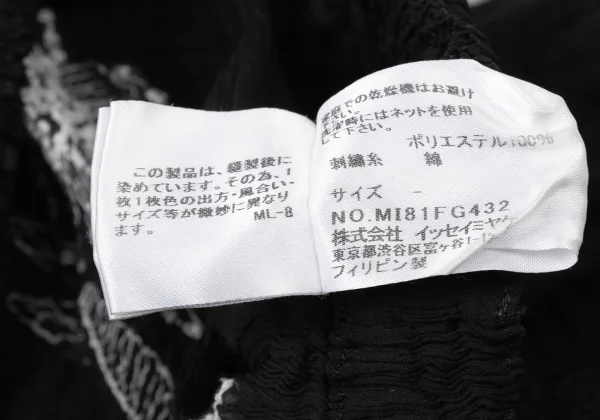 この製品は、縫製後に
染めています。その為、1
枚1枚色の出方・風合い・
サイズ等が微妙に異なり
ます。
ML-8
家庭での乾燥機はお避け
下さい。
洗濯時にはネットを使用
して下さい。
ポリエステル100%
刺繍糸 綿
サイズ -
NO.MI81FG432
株式会社 イッセイミヤケ
東京都渋谷区富ヶ谷1-
フィリピン製